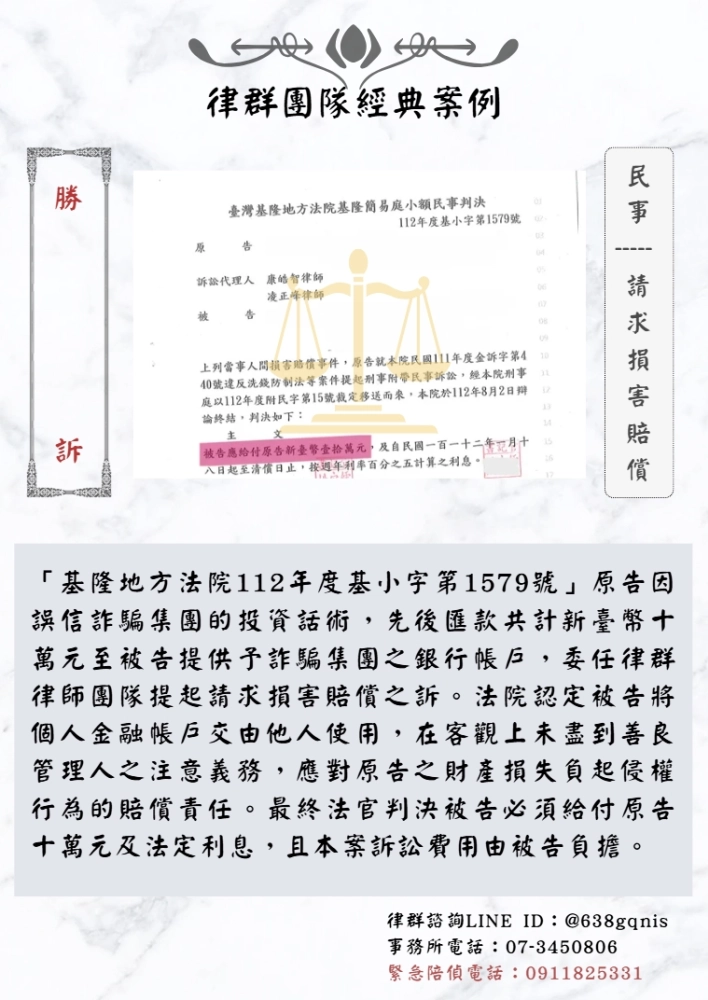 律群團隊經典案例
勝訴
民事-----請求損害賠償
臺灣基隆地方法院基隆簡易庭小額民事判決
112年度基小字第1579號
原 告
訴訟代理人 康皓智律師
凌正峰律師
被 告
上列當事人間損害賠償事件，原告就本院民國111年度金訴字第4
40號違反洗錢防制法等案件提起刑事附帶民事訴訟，經本院刑事
庭以112年度附民字第15號裁定移送而來，本院於112年8月2日辯
論終結，判決如下：
主 文
被告應給付原告新臺幣壹拾萬元，及自民國一百一十二年一月十
八日起至清償日止，按週年利率百分之五計算之利息。
「基隆地方法院112年度基小字第1579號」原告因
誤信詐騙集團的投資話術，先後匯款共計新臺幣十
萬元至被告提供予詐騙集團之銀行帳戶，委任律群
律師團隊提起請求損害賠償之訴。法院認定被告將
個人金融帳戶交由他人使用，在客觀上未盡到善良
管理人之注意義務，應對原告之財產損失負起侵權
行為的賠償責任。最終法官判決被告必須給付原告
十萬元及法定利息，且本案訴訟費用由被告負擔。
律群諮詢LINE ID：@638gqnis
事務所電話：07-3450806
緊急陪偵電話：0911825331